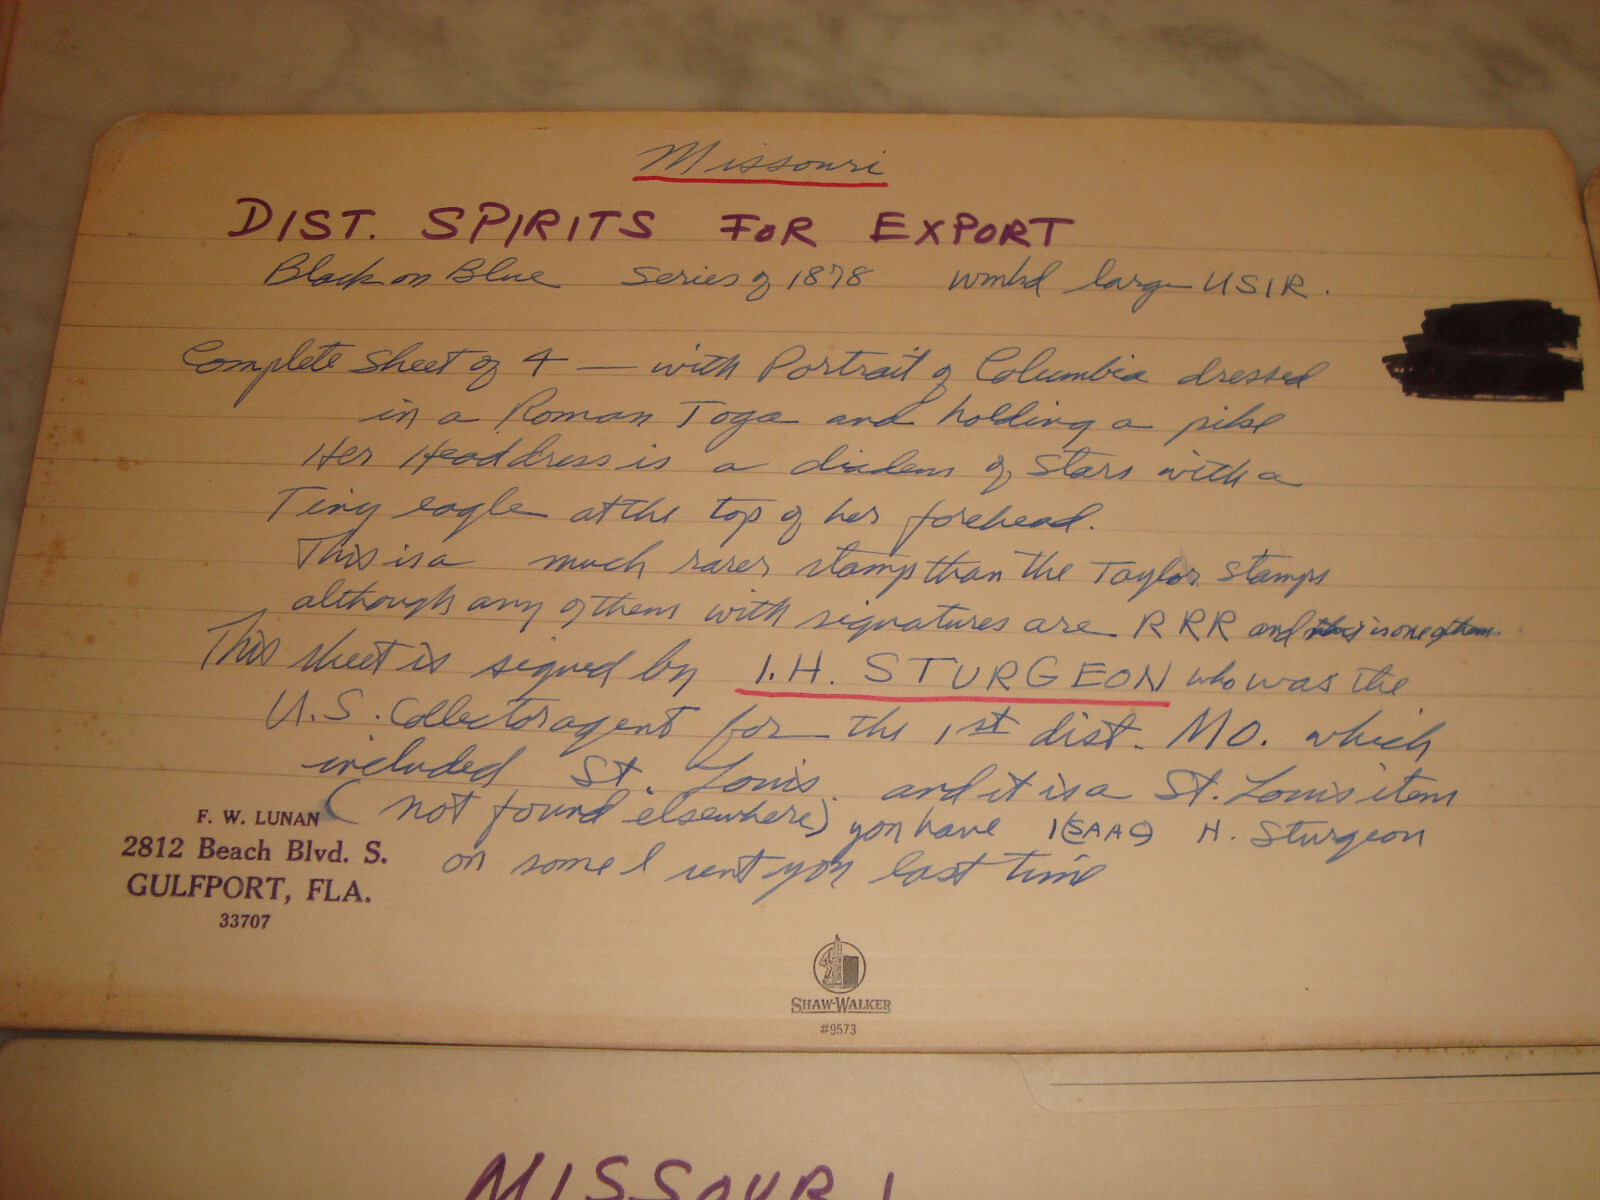 Missouri
DIST. SPIRITS FOR EXPORT
Black on Blue Series of 1878 wmkd large USIR.
Complete Sheet of 4 — with Portrait of Columbia dressed
in a Roman Toga and holding a pike
Her Headdress is a diadem of Stars with a
Tiny eagle at the top of her forehead.
This is a much rarer stamp than the Taylor Stamps
although any of them with signatures are RRR and this is one of them
This sheet is signed by I.H. STURGEON who was the
U.S. Collector agent for the 1st dist. MO. which
included St. Louis. and it is a St. Louis item
(not found elsewhere) you have I(SAAC) H. Sturgeon
on some I sent you last time
F. W. LUNAN
2812 Beach Blvd. S.
GULFPORT, FLA.
33707
SHAW-WALKER
#9573
MISSOURI